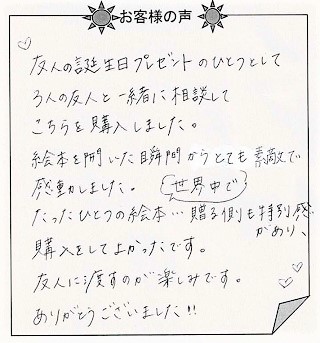 お客様の声
友人の誕生日プレゼントのひとつとして
3人の友人と一緒に相談して
こちらを購入しました。
絵本を開いた瞬間からとても素敵で
感動しました。 世界中で
たったひとつの絵本…贈る側も特別感
があり、
購入をしてよかったです。
友人に渡すのが楽しみです。
ありがとうございました!!